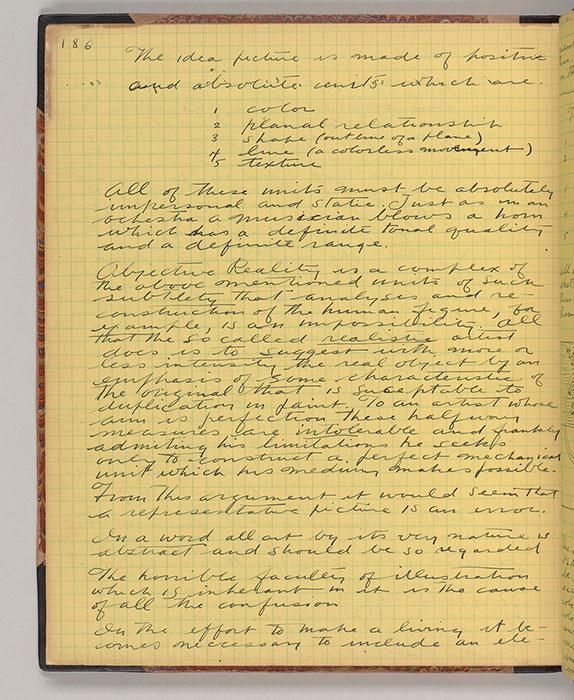 186
The idea picture is made of positive
and absolute units which are.
1 color
2 planal relationship
3 shape (outline of a plane)
4 line (a colorless movement)
5 texture
All of these units must be absolutely
impersonal and static. Just as in an
ochestra a musician blows a horn
which has a definite tonal quality
and a definite range.
Objective Reality is a complex of
the above mentioned units of such
subtlety that analyses and re-
construction of the human figure, for
example, is an impossibility. All
that the so called realistic artist
does is to suggest with more or
less intensity the real object by an
emphasis of some characteristic of
the original that is suceptable to
duplication in paint. To an artist whose
aim is perfection these half way
measures are intolerable and frankly
admiting his limitations he seeks
only to construct a perfect mechanical
unit which his medium makes possible.
From this argument it would seem that
a representative picture is an error.
In a word all art by its very nature is
abstract and should be so regarded
The horrible faculty of illustration
which is inherant in it is the cause
of all the confusion
In the effort to make a living it be-
comes neccessary to include an ele-